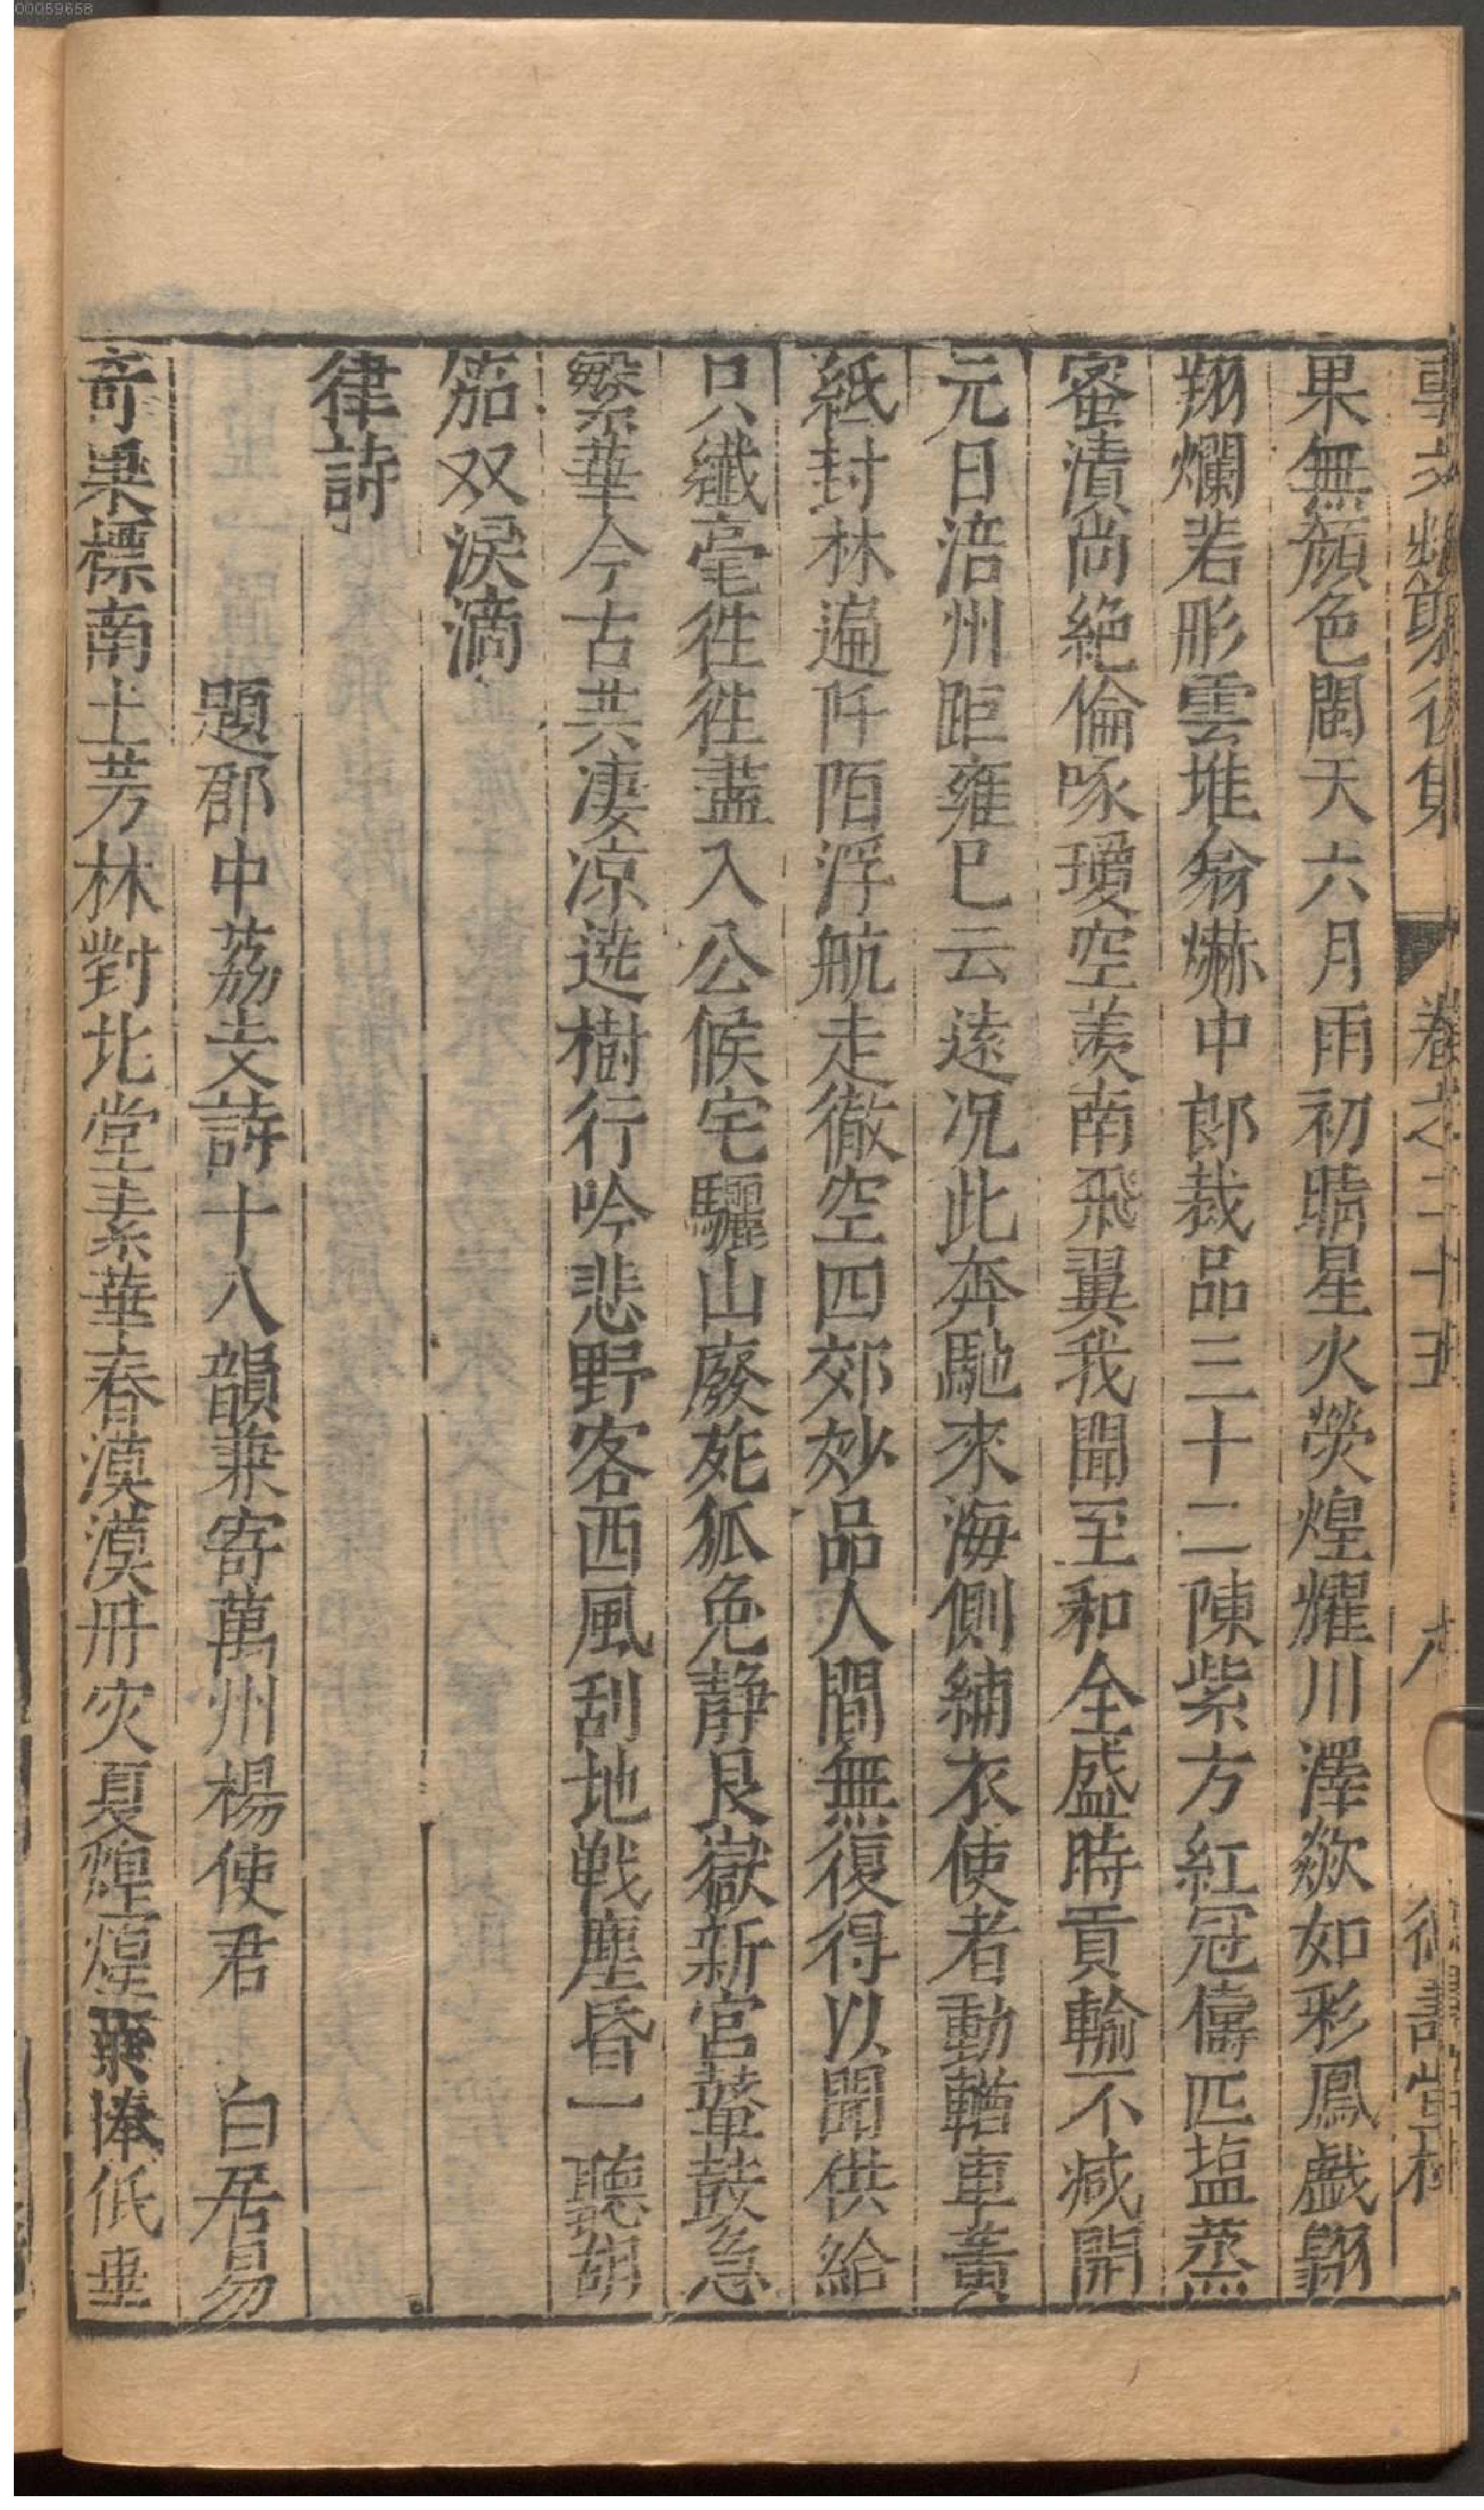 00059658
事文類聚後集 卷之二十五 德壽堂梓
果無顏色閩天六月雨初晴星火熒煌耀川澤歘如彩鳳戲翺
翔爛若彤雲堆翕爀中郎裁品三十二陳紫方紅冠儔匹塩蒸
蜜漬尚絶倫啄瓊空羨南飛翼我聞至和全盛時貢輸不减開
元日涪州距雍已云遠况此奔馳來海側綉衣使者動輶車黃
紙封林遍阡陌浮航走徹空四郊妙品人間無復得以聞供給
只纖毫徃徃盡入公候宅驪山廢苑狐兔静艮嶽新宮鼙鼓急
繁華今古共凄凉遶樹行吟悲野客西風刮地戦塵昏一聽胡
笳双淚滴
律詩
題郡中茘支詩十八韻兼寄萬州楊使君 白居易
竒果標南土芳林對北堂素華春漠漠丹实夏煌煌葉捧低垂